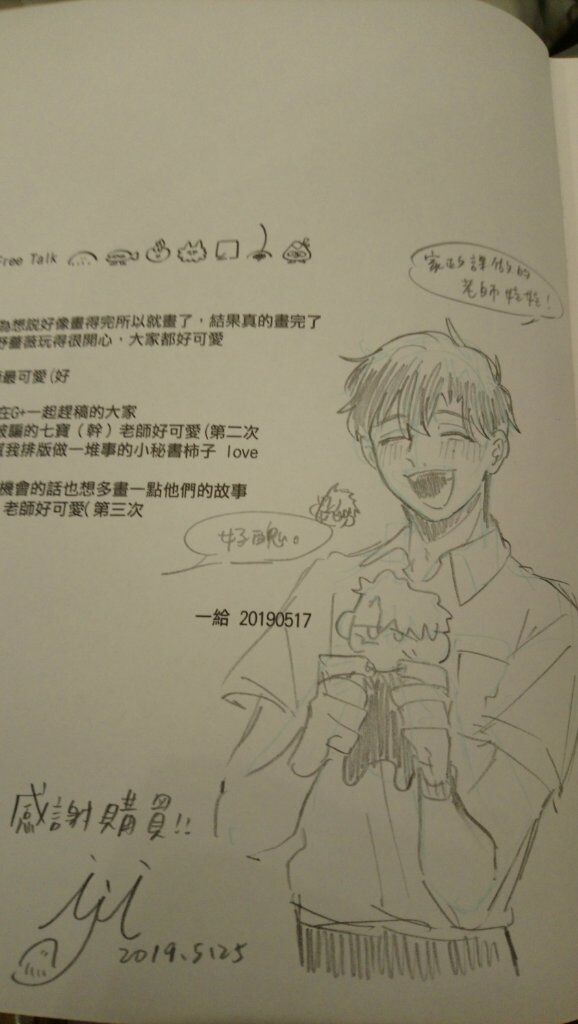 Free Talk
為想説好像畫得完所以就畫了，結果真的畫完了
野薔薇玩得很開心，大家都好可愛
最可愛(好
在G+一起趕稿的大家
被騙的七寶（幹）老師好可愛(第二次
幫我排版做一堆事的小秘書柿子 love
機會的話也想多畫一點他們的故事
老師好可愛(第三次
一給 20190517
家政課做的
老師娃娃！
好醜。
感謝購買!!
iji
2019.5.25